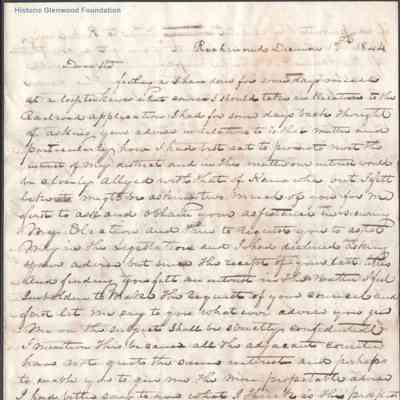 Historic Glenwood Foundation
Richmond December 1844
Dear Sir
feeling as I have done for some days
at a loss to know what course I should take in relation to the
Railroad application I had for some days back thought
of asking your advice in relation to is this matter and
particularly how I had best act to promote most the
interest of my district and in this matter our interest would
be closely allyed with that of Kanawha but I felt
it might be asking two much of you for me
first to ask and obtain your assistance in securing
my Election and then to request you to assist
me in the Legislature and I had declined asking
your advice but since the receipt of your last this
and finding you felt an interest in the matter I feel
to make the request of your council and
first let me say to you what ever advice you give
me on the subject shall be strictly confidential
I mention this because all the adjacent counties
have not quite the same interest and perhaps
to enable you to give me the more profitable advice
I had better say to you what I think is the prospect